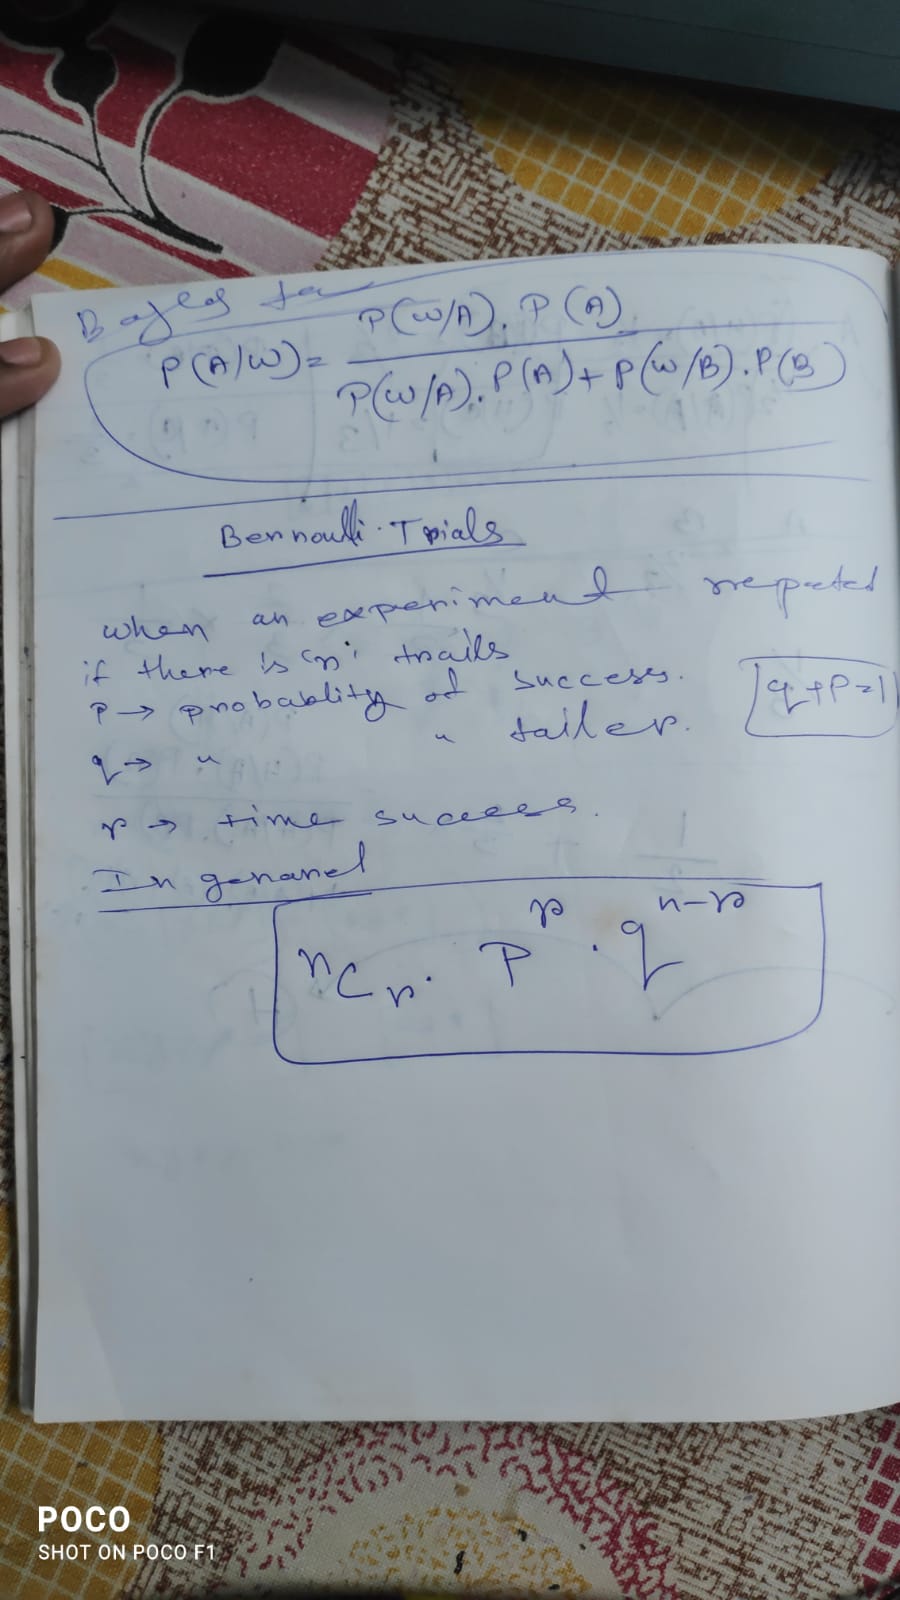 Bayes
P(W/A). P(A)
P(A/W)= 
P(W/A). P(A)+P(W/B).P(B)
Bernoulli Trials
When an experiment repeated
if there is 'n' trails
P → probablity of success.
q+P=1
q → " " failer.
r → time success.
In genarel
nCr. P^r . q^n-r
POCO
SHOT ON POCO F1